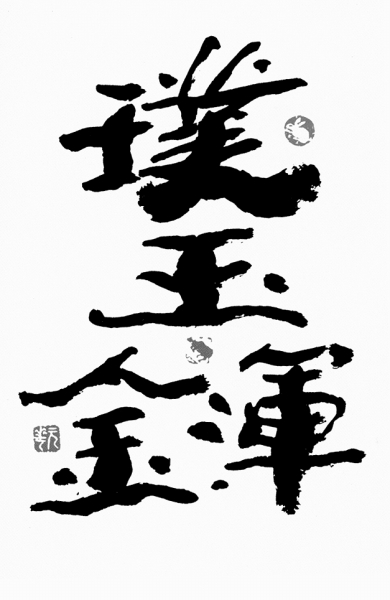 璞
玉
渾金